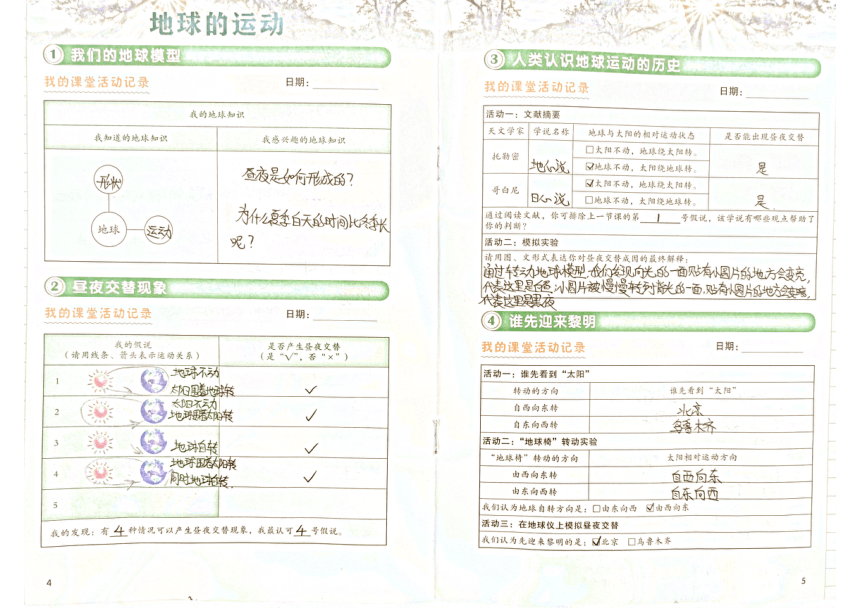 地球的运动
1 我们的地球模型
我的课堂活动记录 日期：
我的地球知识
我知道的地球知识 我感兴趣的地球知识
形状
地球 运动
昼夜是如何形成的？
为什么夏季白天的时间比冬季长
呢？
2 昼夜交替现象
我的课堂活动记录 日期：
我的假说 是否产生昼夜交替
（请用线条、箭头表示运动关系） （是“√”，否“×”）
1 地球不动
太阳围着地球转 ✓
2 太阳不动
地球围着太阳转 ✓
3 地球自转 ✓
4 地球围着太阳转
同时地球自转 ✓
5
我的发现：有 4 种情况可以产生昼夜交替现象，我最认可 4 号假说。
4
3 人类认识地球运动的历史
我的课堂活动记录 日期：
活动一：文献摘要
天文学家 学说名称 地球与太阳的相对运动状态 是否能出现昼夜交替
托勒密 地心说 □太阳不动，地球绕太阳转。 是
☑地球不动，太阳绕地球转。
哥白尼 日心说 ☑太阳不动，地球绕太阳转。 是
□地球不动，太阳绕地球转。
通过阅读文献，你可排除上一节课的第 1 号假说，该学说有哪些观点帮助了
你的判断？
活动二：模拟实验
请用图、文形式表达你对昼夜交替成因的最终解释：
通过转动地球模型，我们发现向光的一面贴有小圆片的地方会变亮，
代表这里是白昼，小圆片被慢慢转到背光的一面，贴有小圆片的地方会变暗，
代表这里是黑夜
4 谁先迎来黎明
我的课堂活动记录 日期：
活动一：谁先看到“太阳”
转动的方向 谁先看到“太阳”
自西向东转 北京
自东向西转 乌鲁木齐
活动二：“地球椅”转动实验
“地球椅”转动的方向 太阳相对运动方向
由西向东转 自西向东
由东向西转 自东向西
我们认为地球自转方向是：□由东向西 ☑由西向东
活动三：在地球仪上模拟昼夜交替
我们认为先迎来黎明的是：☑北京 □乌鲁木齐
5